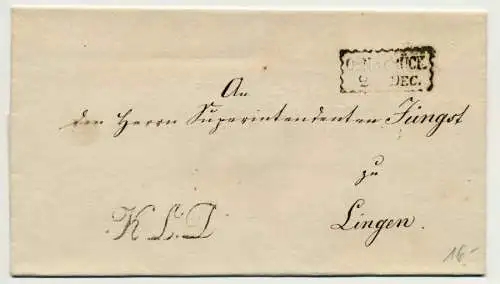 OSNABRÜCK
DEC.
An
den Herrn Superintendenten Jüngst
zu
Lingen.
K.L.D
16.-